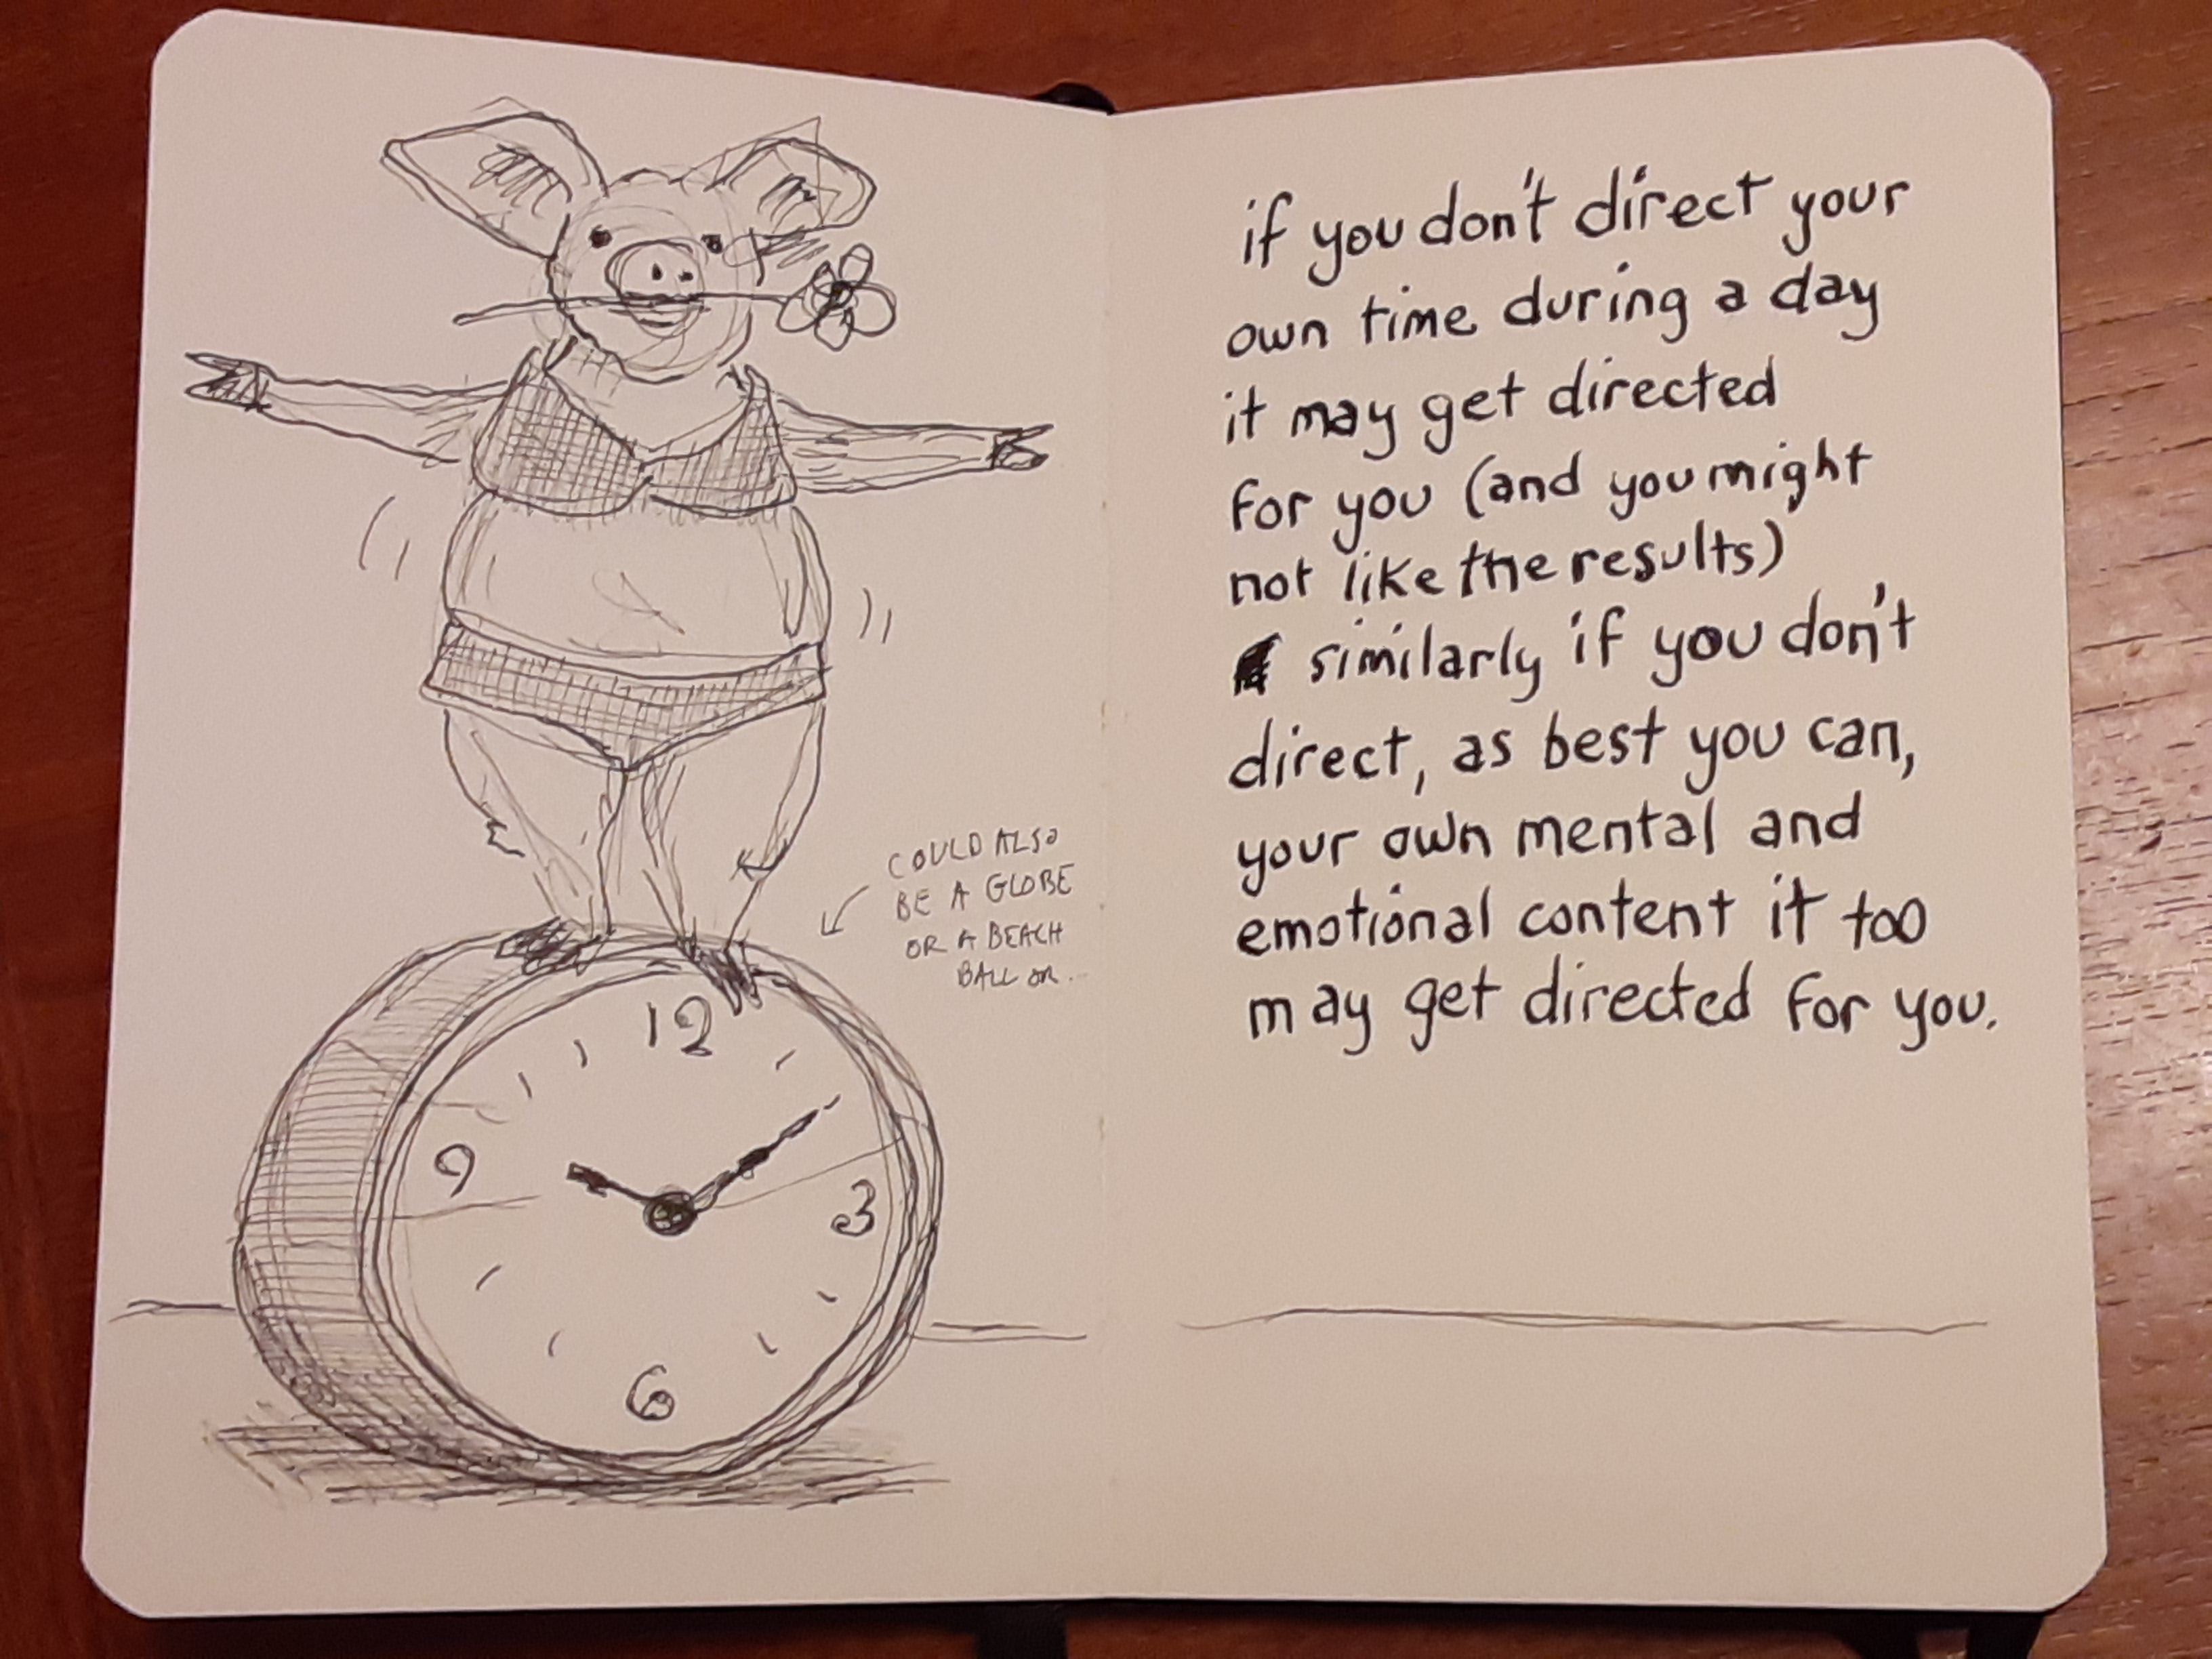 COULD ALSO
BE A GLOBE
OR A BEACH
BALL OR...
12
9
3
6
if you don't direct your
own time during a day
it may get directed
for you (and you might
not like the results)
similarly if you don't
direct, as best you can,
your own mental and
emotional content it too
may get directed for you.